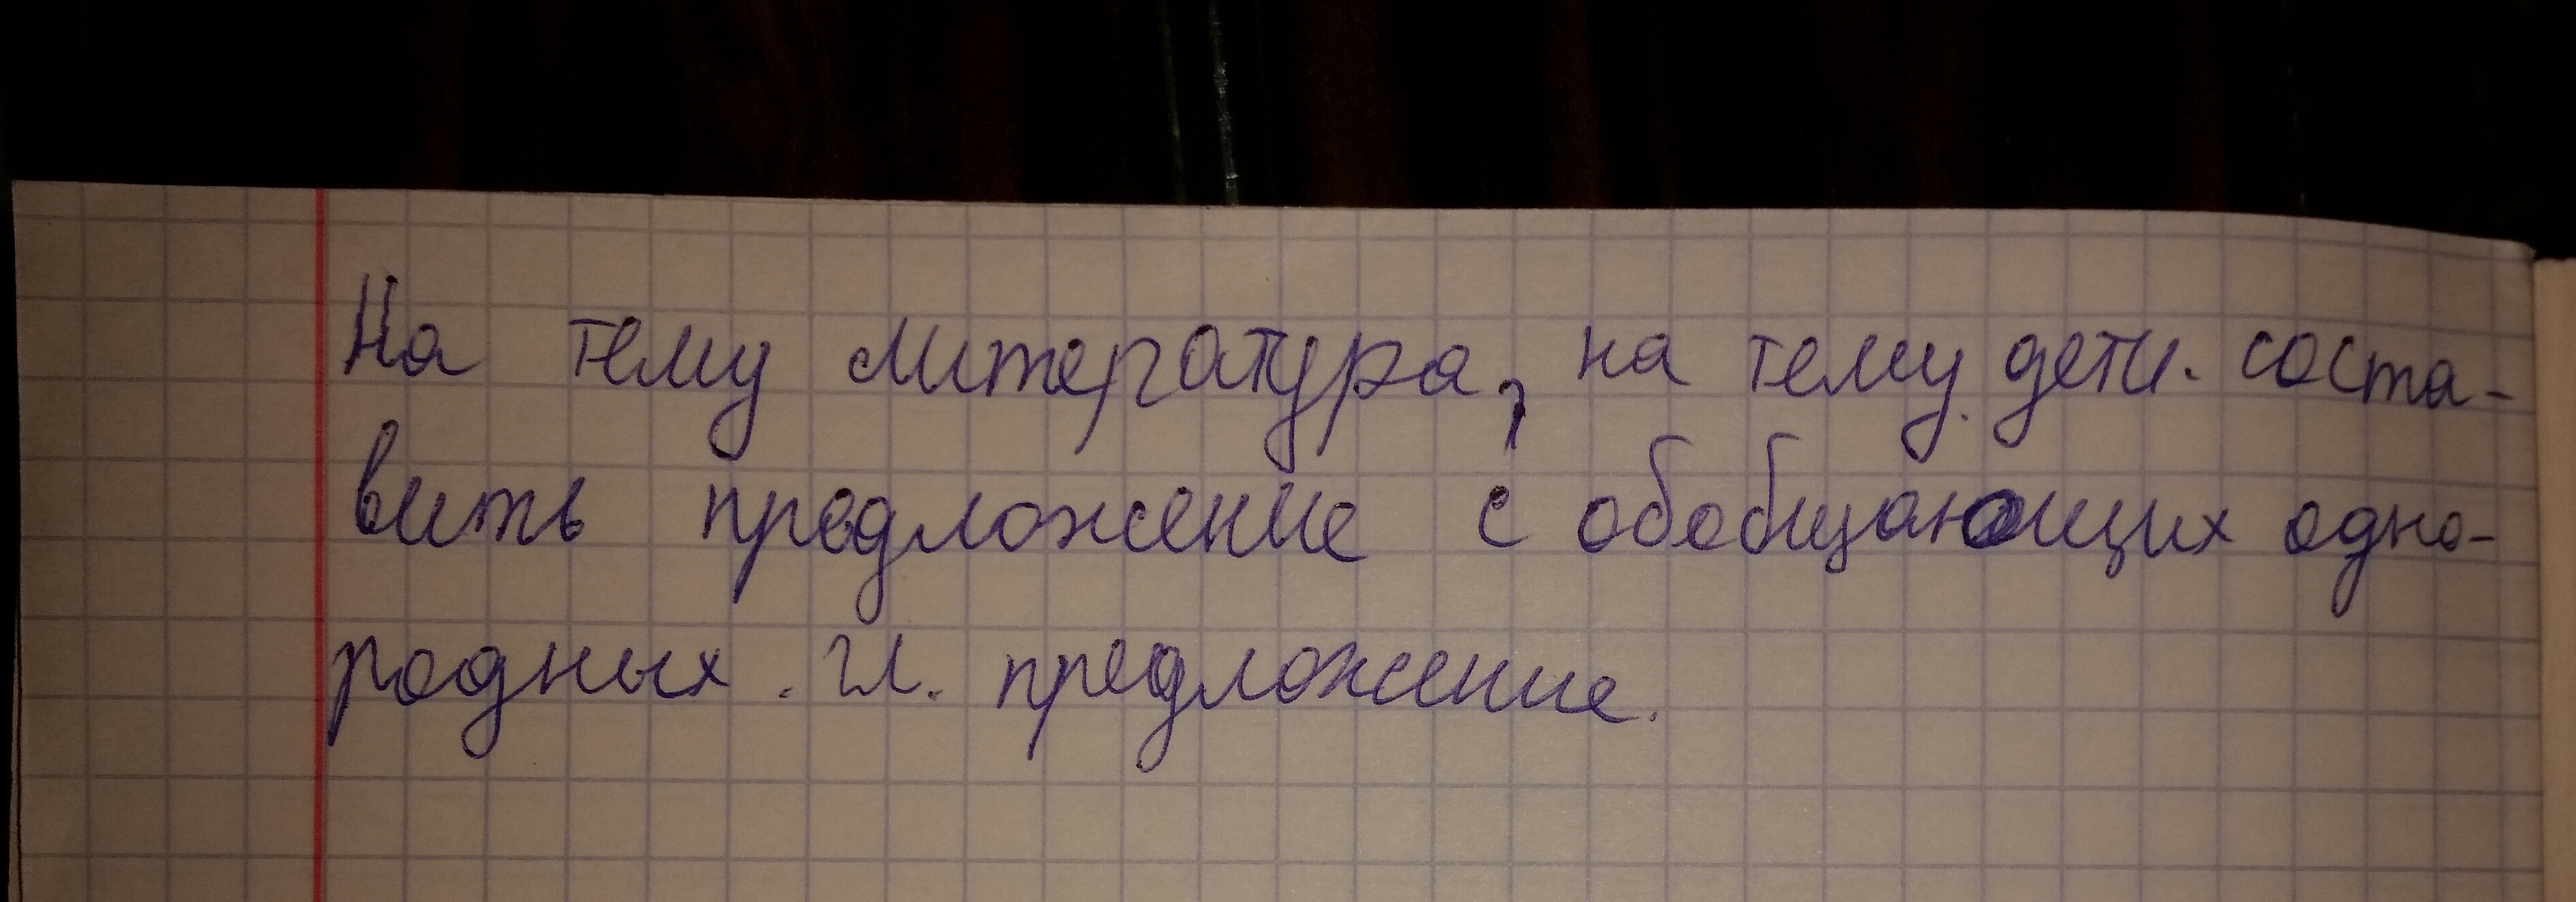 На тему литература, на тему дети. соста-
вить предложение с обобщающих одно-
родных. гл. предложение.